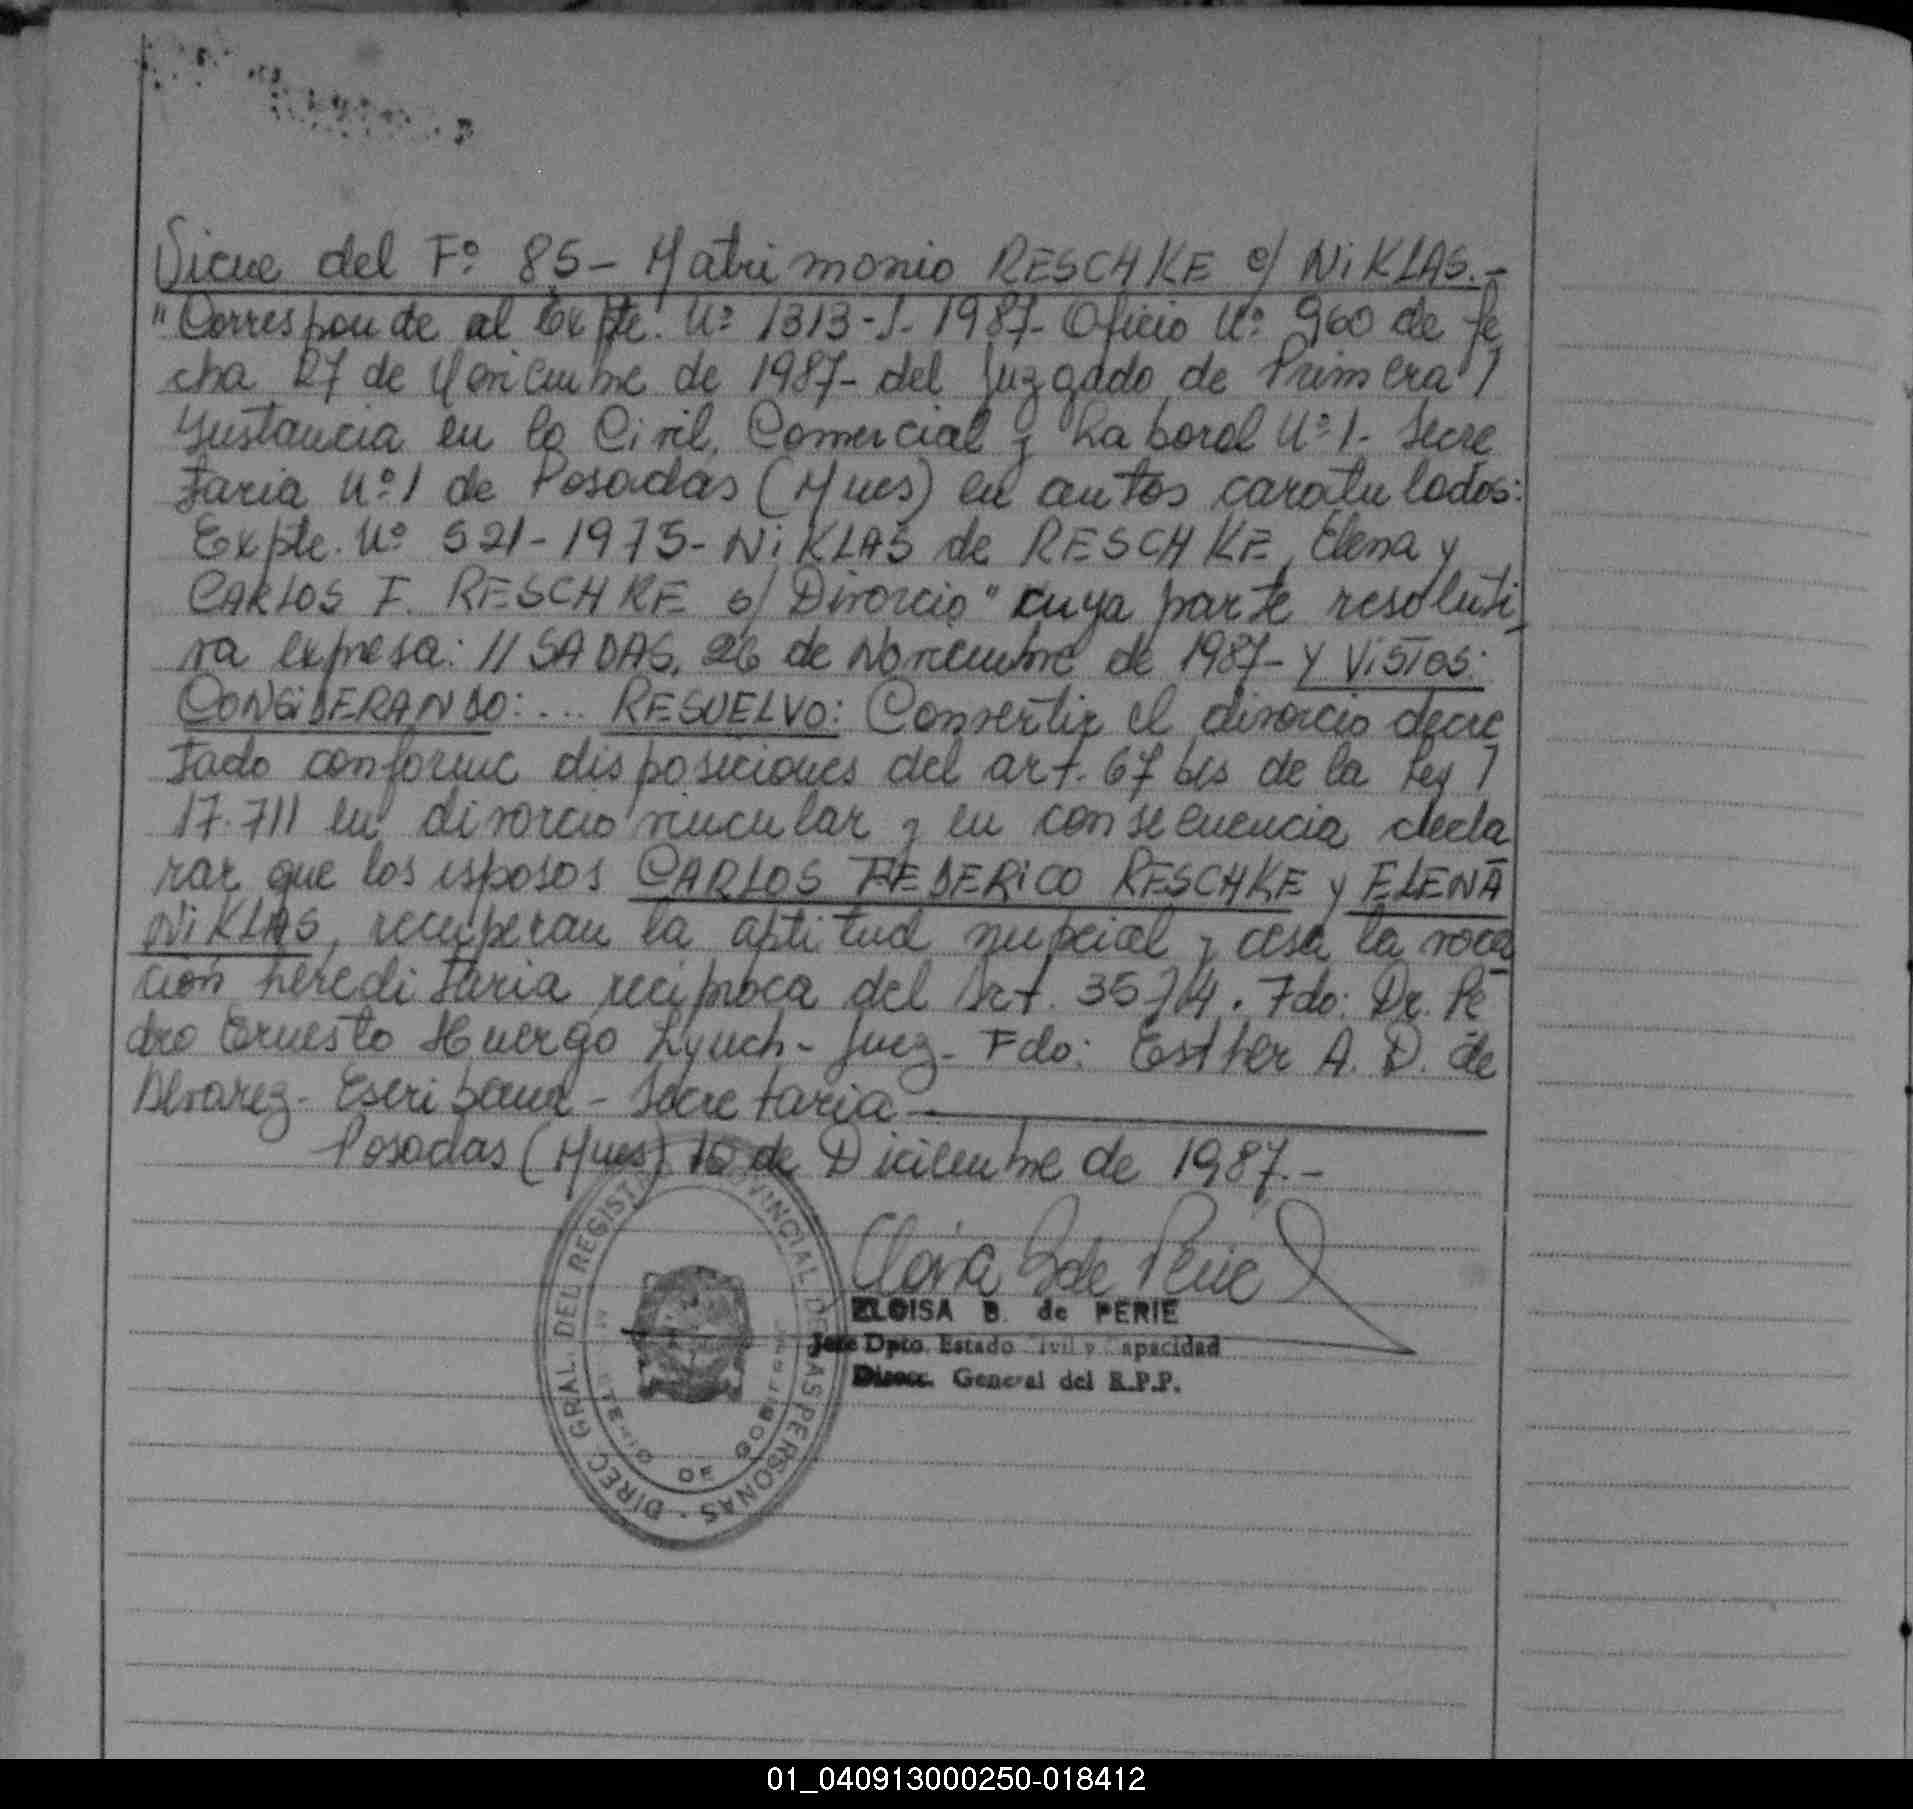 Sicue del Fº 85- Matrimonio RESCHKE c/ NiKLAS.-
"Corresponde al Expte. Nº 1313-J-1987- Oficio Nº 960 de fe
cha 27 de Noviembre de 1987- del Juzgado de Primera /
Instancia en lo Civil, Comercial y Laboral Nº 1- Secre
taria Nº 1 de Posadas (Mnes) en autos caratulados:
Expte. Nº 521-1975- NiKLAS de RESCHKE, Elena y
CARLOS F. RESCHKE s/ Divorcio" cuya parte resoluti_
va expresa: //SADAS, 26 de Noviembre de 1987- Y ViSTOS:
CONSiDERANDO:... RESUELVO: Convertir el divorcio decre
tado conforme disposiciones del art. 67 bis de la Ley /
17.711 en divorcio vincular y en consecuencia decla
rar que los esposos CARLOS FEDERiCO RESCHKE y ELENA
NiKLAS, recuperan la aptitud nupcial y cesa la voca_
ción hereditaria recíproca del Art. 3574. Fdo: Dr. Pe
dro Ernesto Huergo Lynch- Juez- Fdo: Esther A. D. de
Alvarez- Escribana- Secretaria
Posadas (Mnes) 10 de Diciembre de 1987.-
ELOISA B. de PERIE
Jefe Dpto. Estado Civil y Capacidad
Direcc. General del R.P.P.
DIREC. GRAL. DEL REGISTRO PROVINCIAL DE LAS PERSONAS -
MINISTERIO DE GOBIERNO
01_040913000250-018412